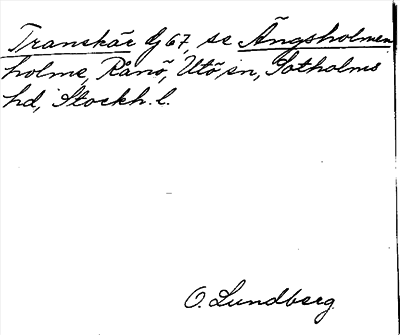 Transkär G 67, se Ängsholmen
holme, Rånö, Utö sn, Sotholms
hd, Stockh. l.
O. Lundberg.